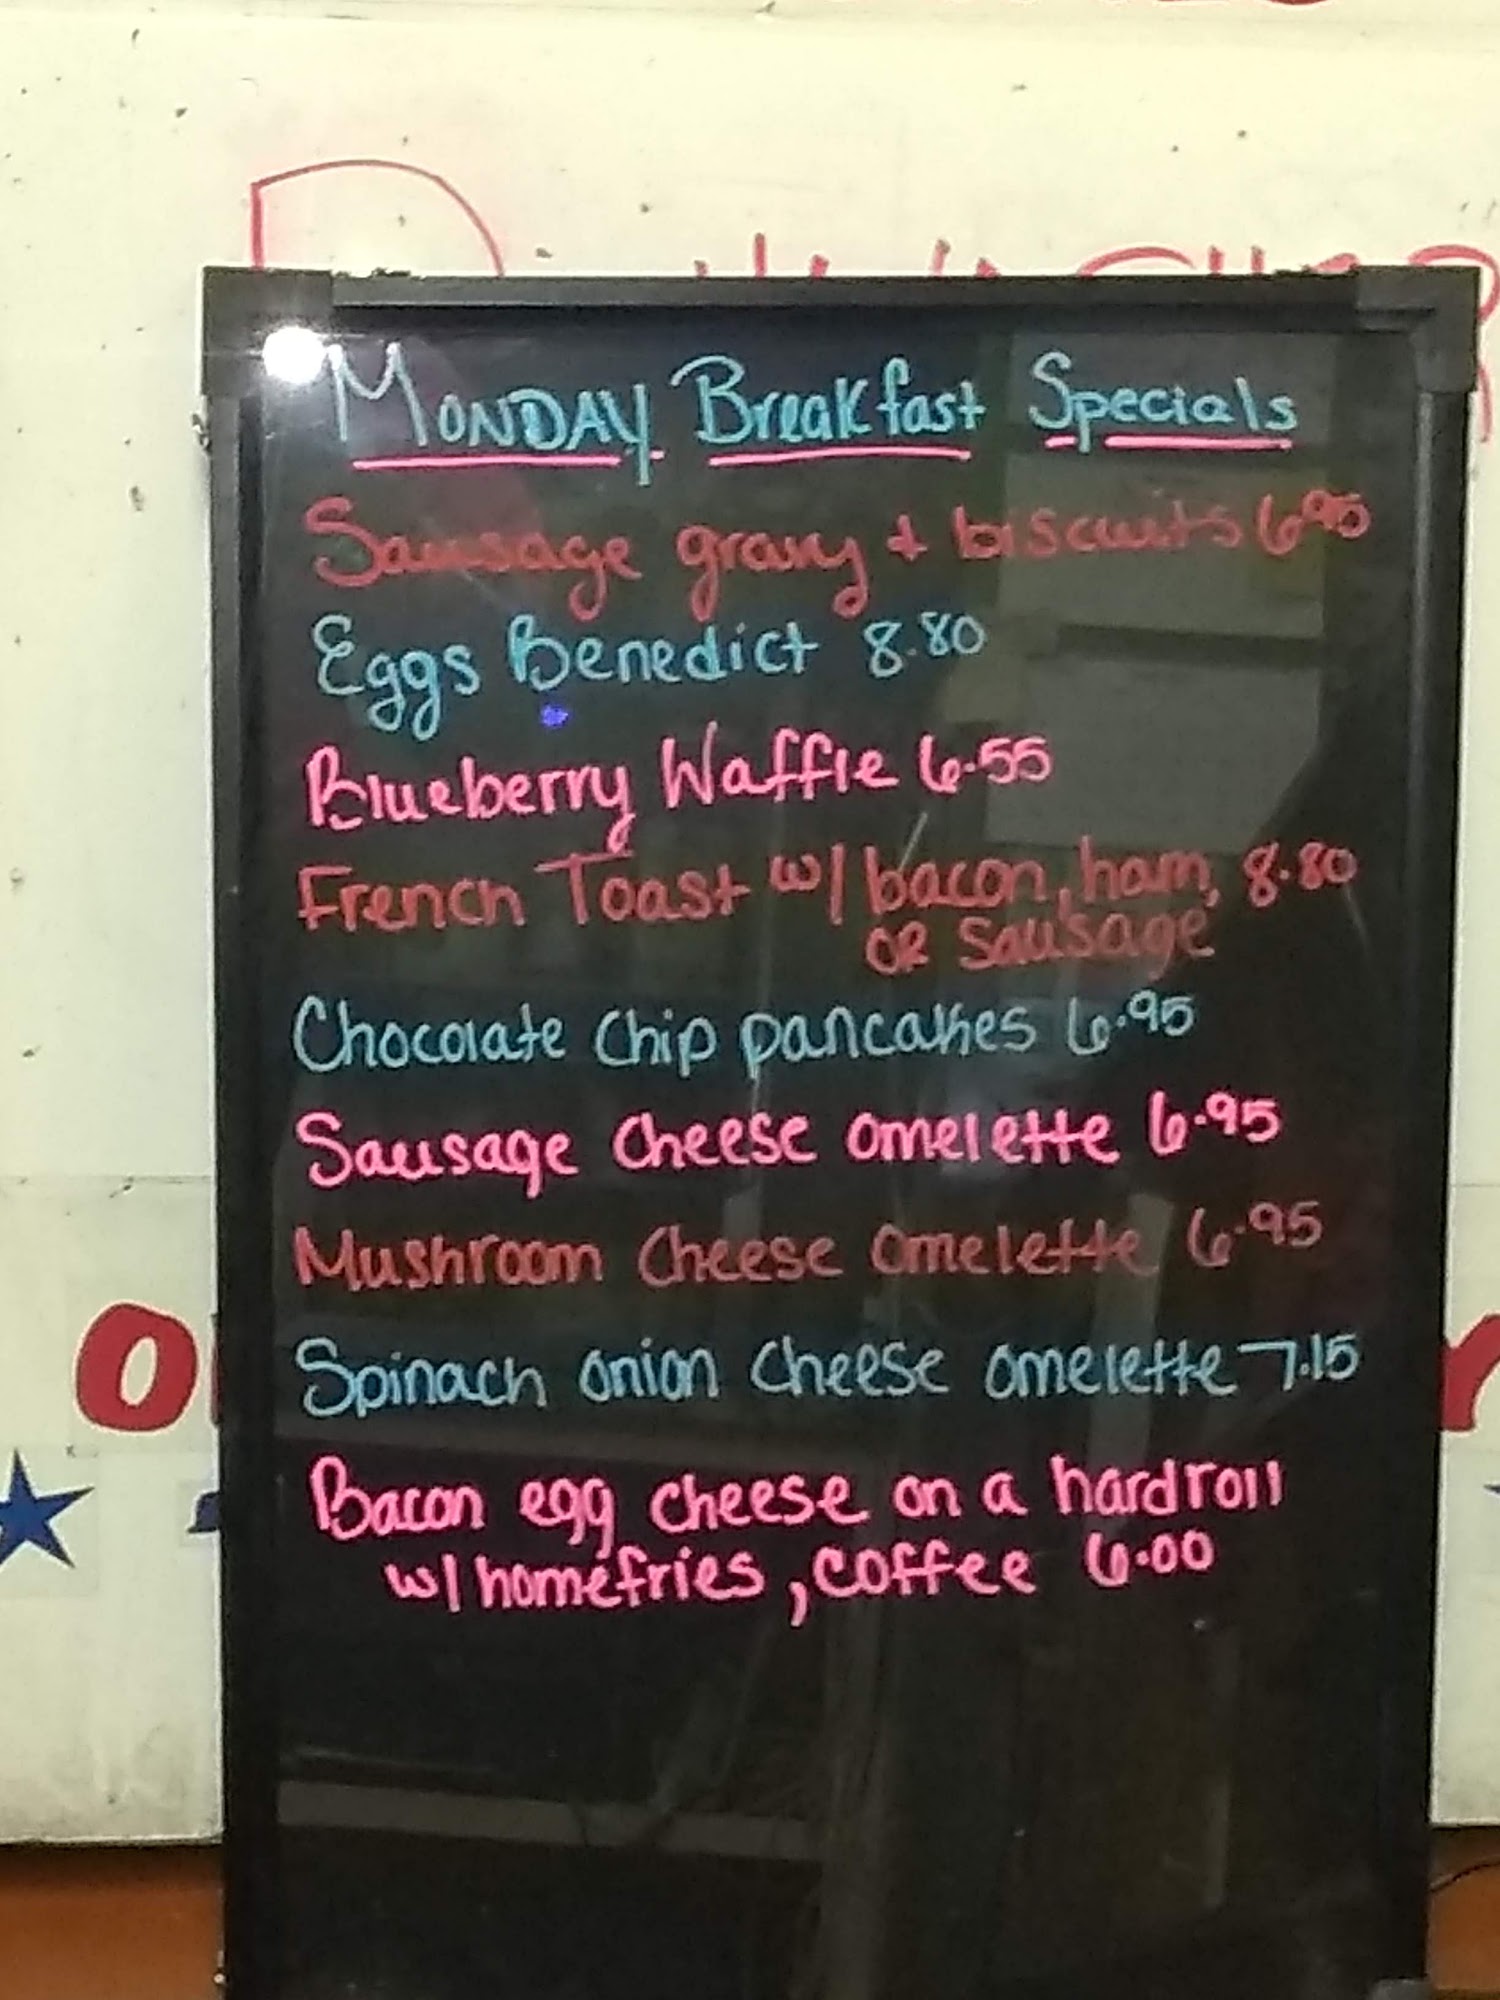 MONDAY Breakfast Specials
Sausage gravy + biscuits 6.95
Eggs Benedict 8.80
Blueberry Waffle 6.55
French Toast w/ bacon, ham, 8.80
OR Sausage
Chocolate Chip pancakes 6.95
Sausage Cheese omelette 6.95
Mushroom Cheese omelette 6.95
Spinach onion Cheese omelette 7.15
Bacon egg cheese on a hardroll
w/ homefries, coffee 6.00